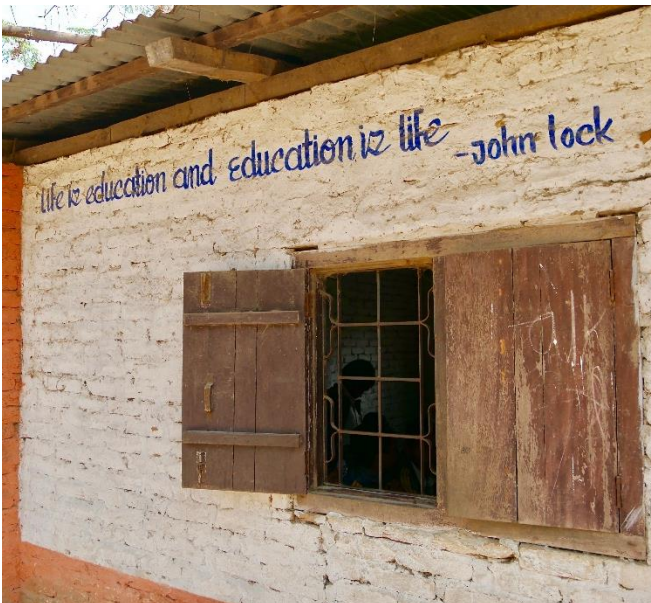 life iz education and Education iz life -john lock